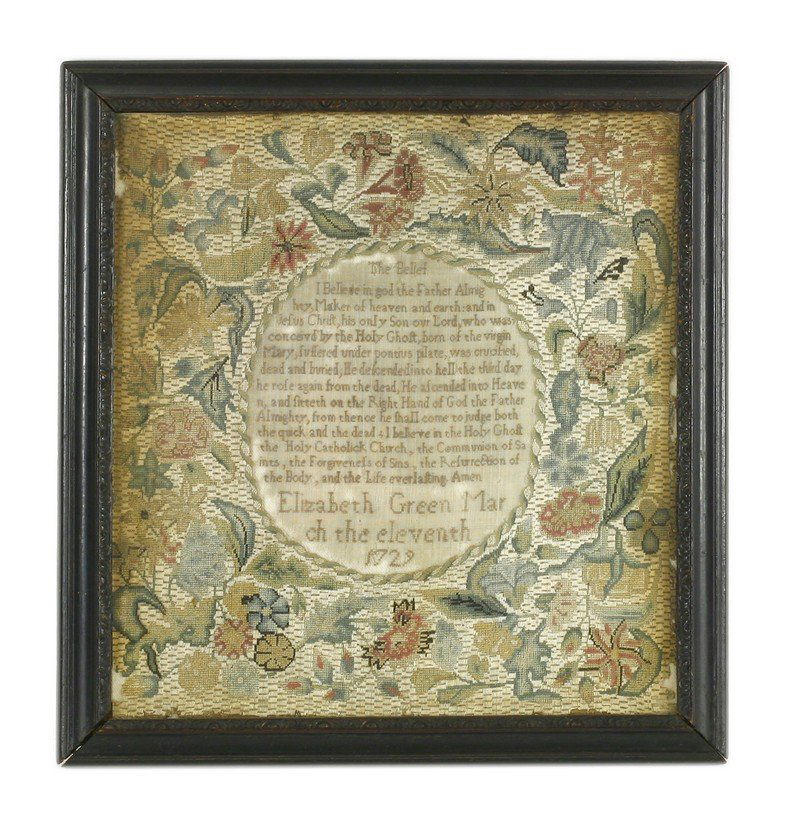 The Belief
I Believe in god the Father Almig
hty, Maker of heaven and earth: and in
Jeſus Chriſt, his only Son our Lord, who was
conceivd by the Holy Ghoſt, born of the virgin
Mary, ſuffered under pontius pilate, was crucified,
dead and buried, He deſcended into hell the third day
he roſe again from the dead, He aſcended into Heave
n, and ſitteth on the Right Hand of God the Father
Almighty, from thence he ſhall come to judge both
the quick and the dead I believe in the Holy Ghoſt
the Holy Catholick Church, the Communion of Sa
ints, the Forgiveneſs of Sins, the Reſurrection of
the Body, and the Life everlaſting. Amen
Elizabeth Green Mar
ch the eleventh
1729